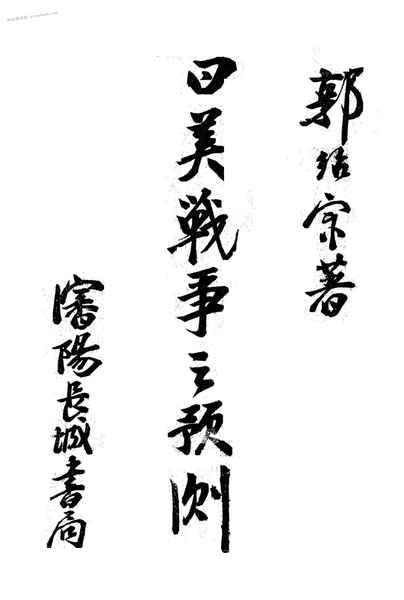 郭紹宗著
日美戰事之预測
瀋陽長城書局